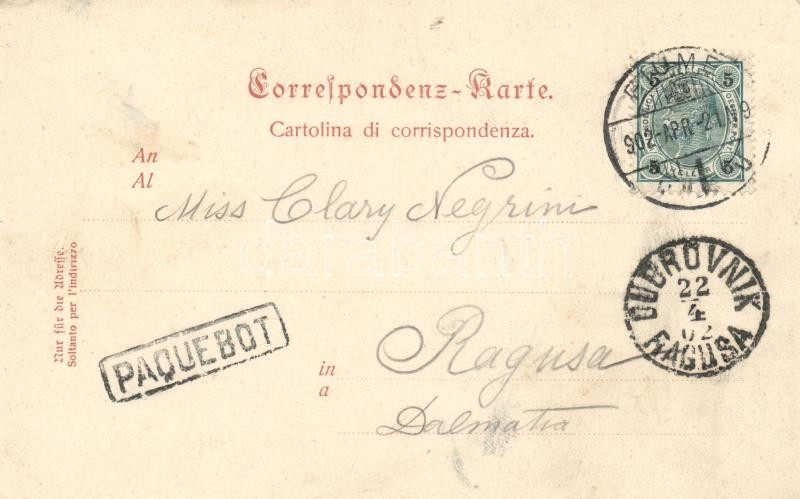 Correspondenz-Karte.
Cartolina di corrispondenza.
An
Al
Miss Clary Negrini
in
a
Ragusa
Dalmatia
Nur für die Adresse.
Soltanto per l'indirizzo
PAQUEBOT
FIUME
902-APR-21
5 5
5 5
DUBROVNIK
22
4
02
RAGUSA
darabanth